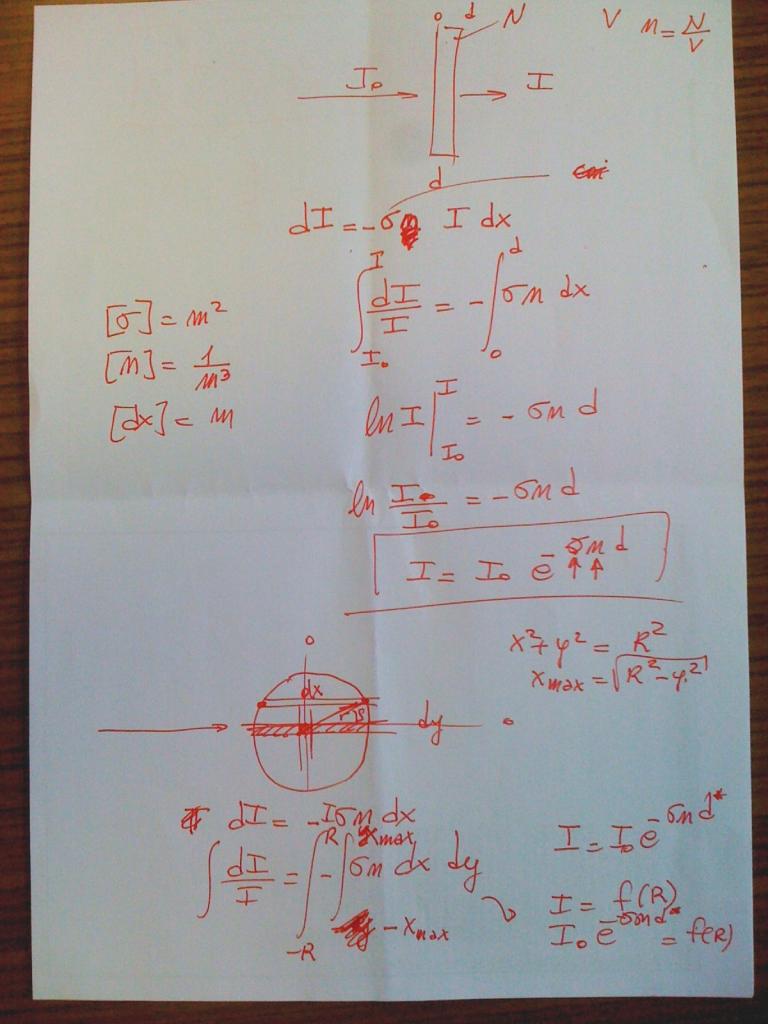 0 d N V n = N/V
I₀ I
d
dI = -σn I dx
∫_{I₀}^{I} dI/I = -∫_{0}^{d} σn dx
[σ] = m²
[n] = 1/m³
[dx] = m
ln I |_{I₀}^{I} = -σn d
ln I/I₀ = -σn d
I = I₀ e^{-σn d}
x² + y² = R²
x_max = √(R² - y²)
0
dx
r
dy
dI = -Iσn dx
∫ dI/I = ∫_{-R}^{R} -∫_{-x_max}^{x_max} σn dx dy
I = I₀ e^{-σn d*}
I = f(R)
I₀ e^{-σn d*} = f(R)